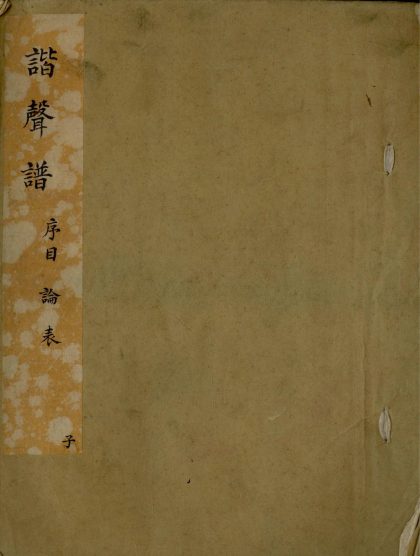 諧聲譜
序目 論 表
子